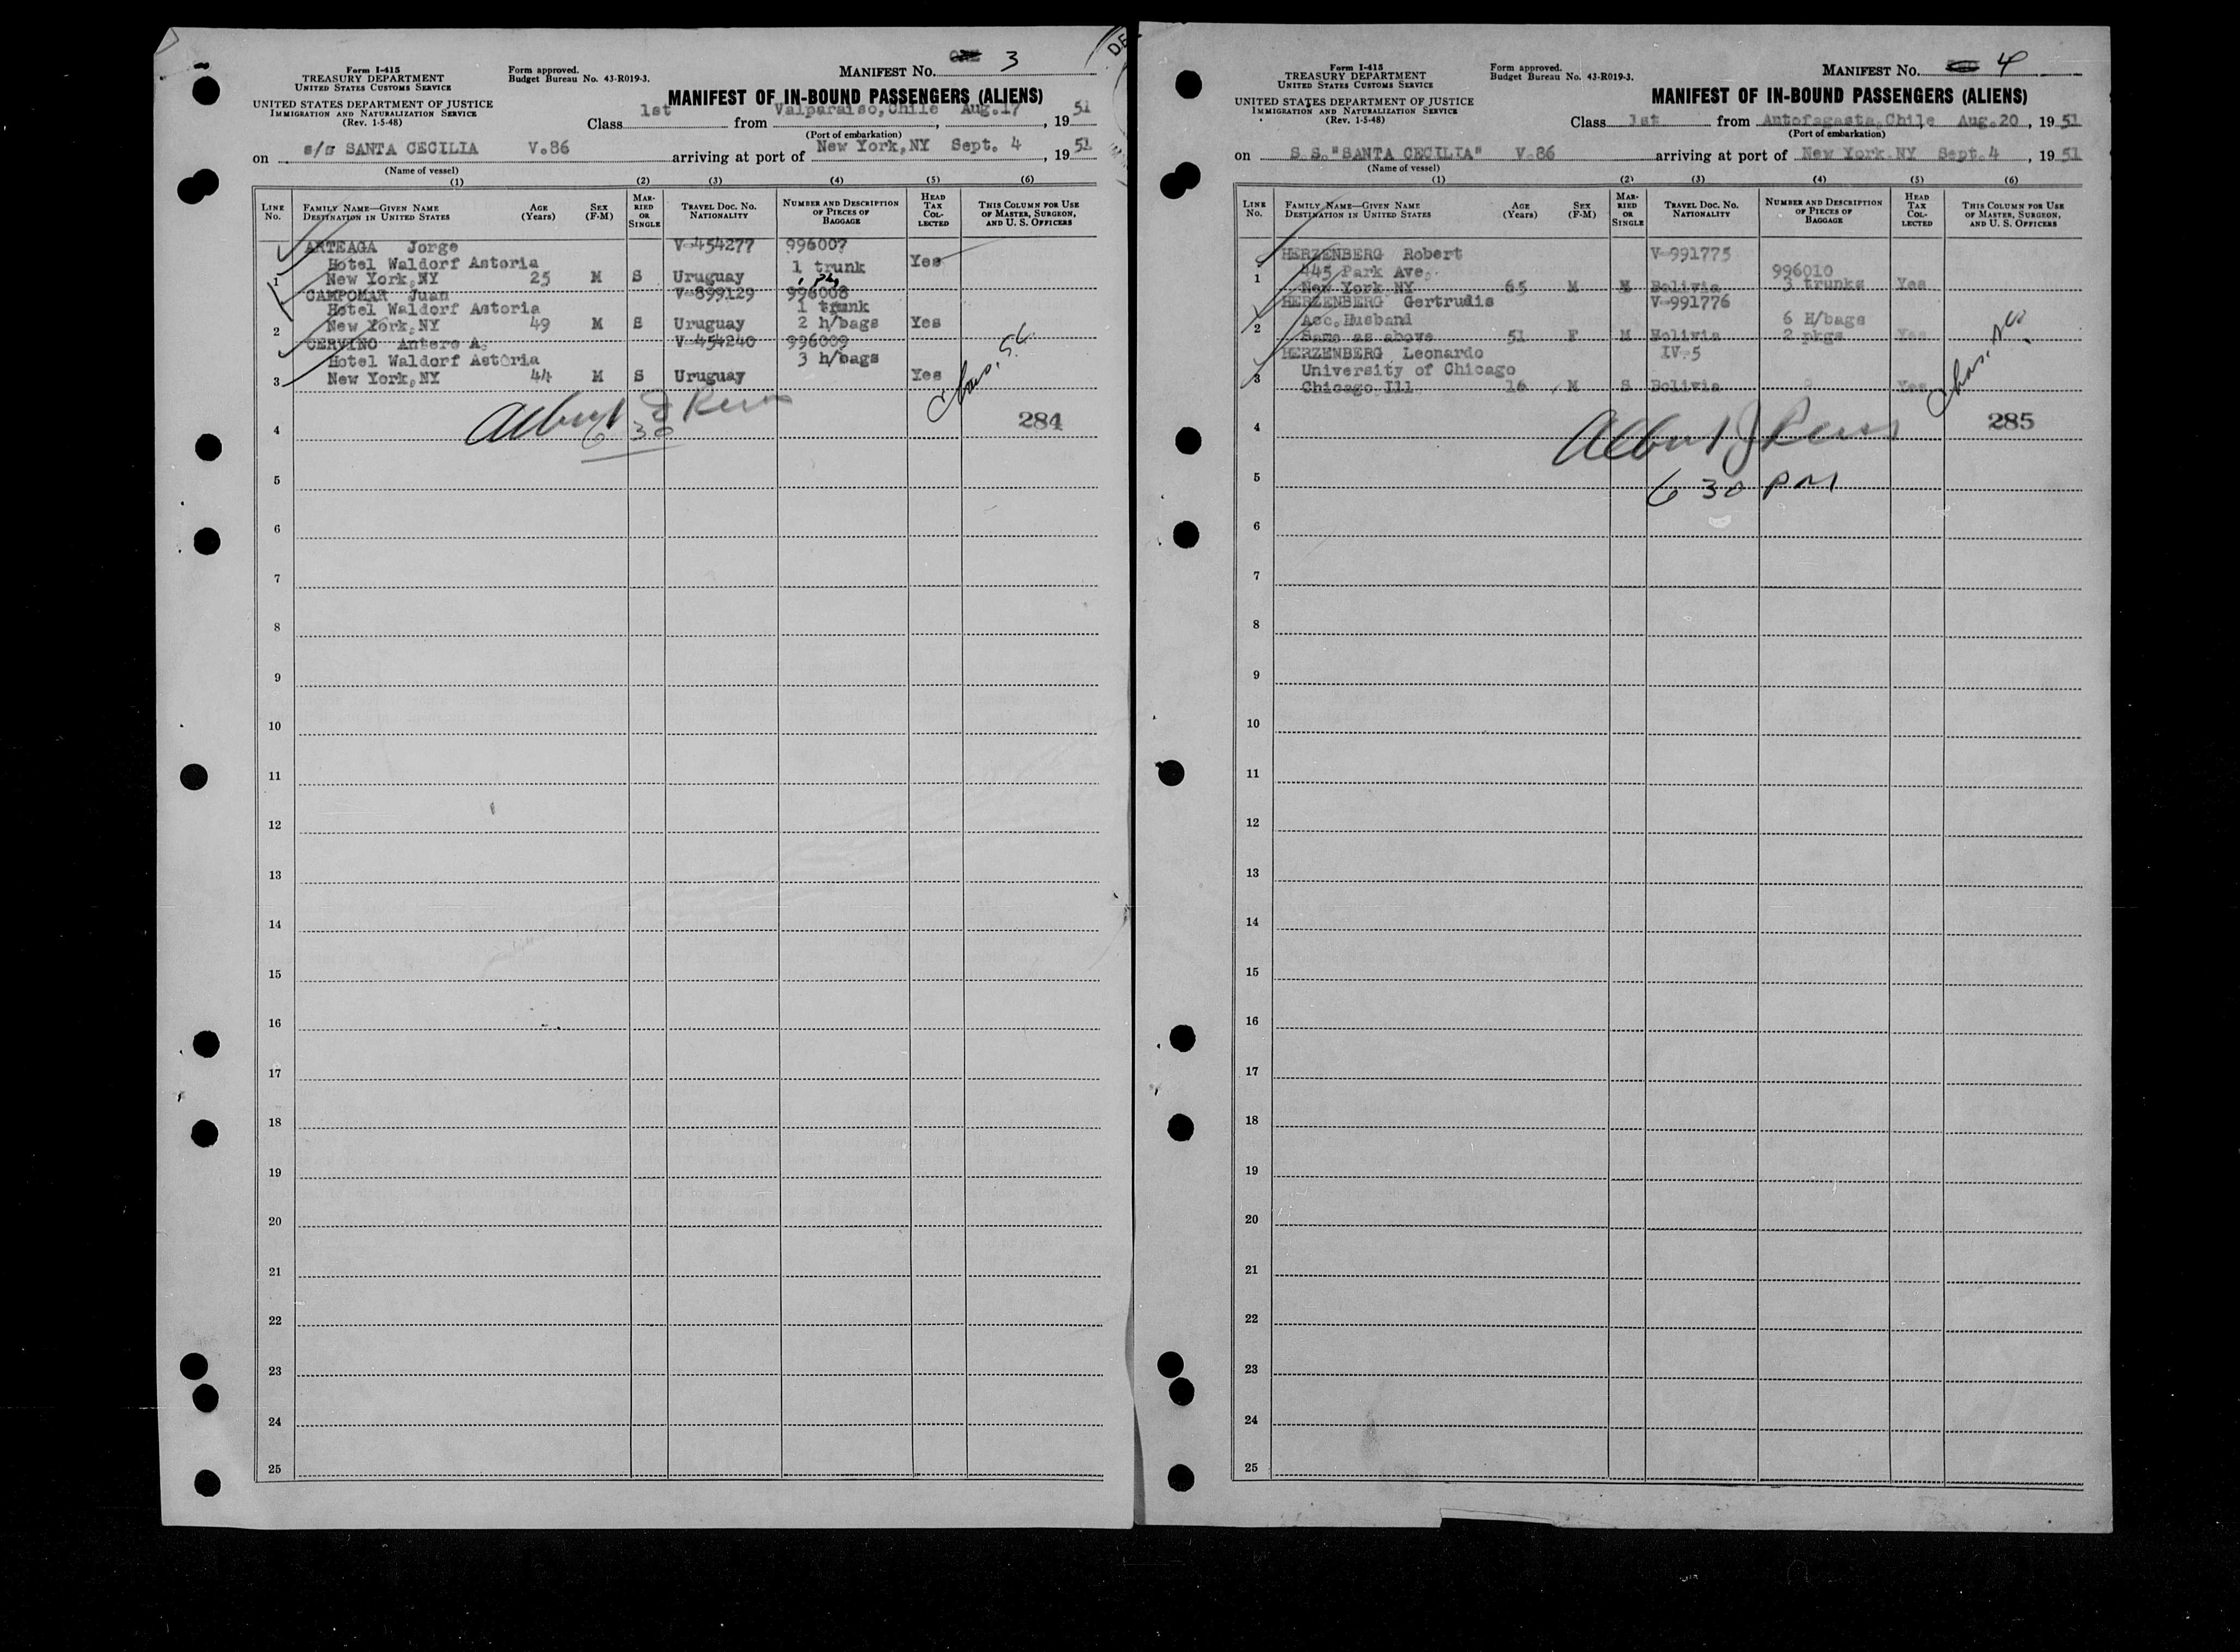 Form I-415
TREASURY DEPARTMENT
UNITED STATES CUSTOMS SERVICE
UNITED STATES DEPARTMENT OF JUSTICE
IMMIGRATION AND NATURALIZATION SERVICE
(Rev. 1-5-48)
Form approved.
Budget Bureau No. 43-R019-3.
MANIFEST No. 3
MANIFEST OF IN-BOUND PASSENGERS (ALIENS)
Class 1st from Valparaiso, Chile, Aug.17, 1951
(Port of embarkation)
on s/s SANTA CECILIA V.86 arriving at port of New York, NY Sept. 4, 1951
(Name of vessel)
(1) (2) (3) (4) (5) (6)
LINE No. FAMILY NAME—GIVEN NAME DESTINATION IN UNITED STATES AGE (Years) SEX (F-M) MARRIED OR SINGLE TRAVEL DOC. NO. NATIONALITY NUMBER AND DESCRIPTION OF PIECES OF BAGGAGE HEAD TAX COLLECTED THIS COLUMN FOR USE OF MASTER, SURGEON, AND U. S. OFFICERS
ARTEAGA Jorge V-454277 996007
Hotel Waldorf Astoria 1 trunk Yes
1 New York, NY 25 M S Uruguay
CAMPOMAR Juan V-899129 996008
Hotel Waldorf Astoria 1 trunk
2 New York, NY 49 M S Uruguay 2 h/bags Yes
CERVINO Antero A. V-454240 996009
Hotel Waldorf Astoria 3 h/bags
3 New York, NY 44 M S Uruguay Yes
4 284
6 30
5
6
7
8
9
10
11
12
13
14
15
16
17
18
19
20
21
22
23
24
25
Form I-415
TREASURY DEPARTMENT
UNITED STATES CUSTOMS SERVICE
UNITED STATES DEPARTMENT OF JUSTICE
IMMIGRATION AND NATURALIZATION SERVICE
(Rev. 1-5-48)
Form approved.
Budget Bureau No. 43-R019-3.
MANIFEST No. 4
MANIFEST OF IN-BOUND PASSENGERS (ALIENS)
Class 1st from Antofagasta, Chile Aug. 20, 1951
(Port of embarkation)
on S.S. "SANTA CECILIA" V.86 arriving at port of New York NY Sept. 4, 1951
(Name of vessel)
(1) (2) (3) (4) (5) (6)
LINE No. FAMILY NAME—GIVEN NAME DESTINATION IN UNITED STATES AGE (Years) SEX (F-M) MARRIED OR SINGLE TRAVEL DOC. NO. NATIONALITY NUMBER AND DESCRIPTION OF PIECES OF BAGGAGE HEAD TAX COLLECTED THIS COLUMN FOR USE OF MASTER, SURGEON, AND U. S. OFFICERS
HERZENBERG Robert V-991775
445 Park Ave. 996010
1 New York NY 65 M M Bolivia 3 trunks Yes
HERZENBERG Gertrudis V-991776
Acc. Husband 6 H/bags
2 Same as above 51 F M Bolivia 2 pkgs Yes
HERZENBERG Leonardo IV-5
University of Chicago
3 Chicago Ill 16 M S Bolivia Yes
4 285
5
6 30 PM
6
7
8
9
10
11
12
13
14
15
16
17
18
19
20
21
22
23
24
25